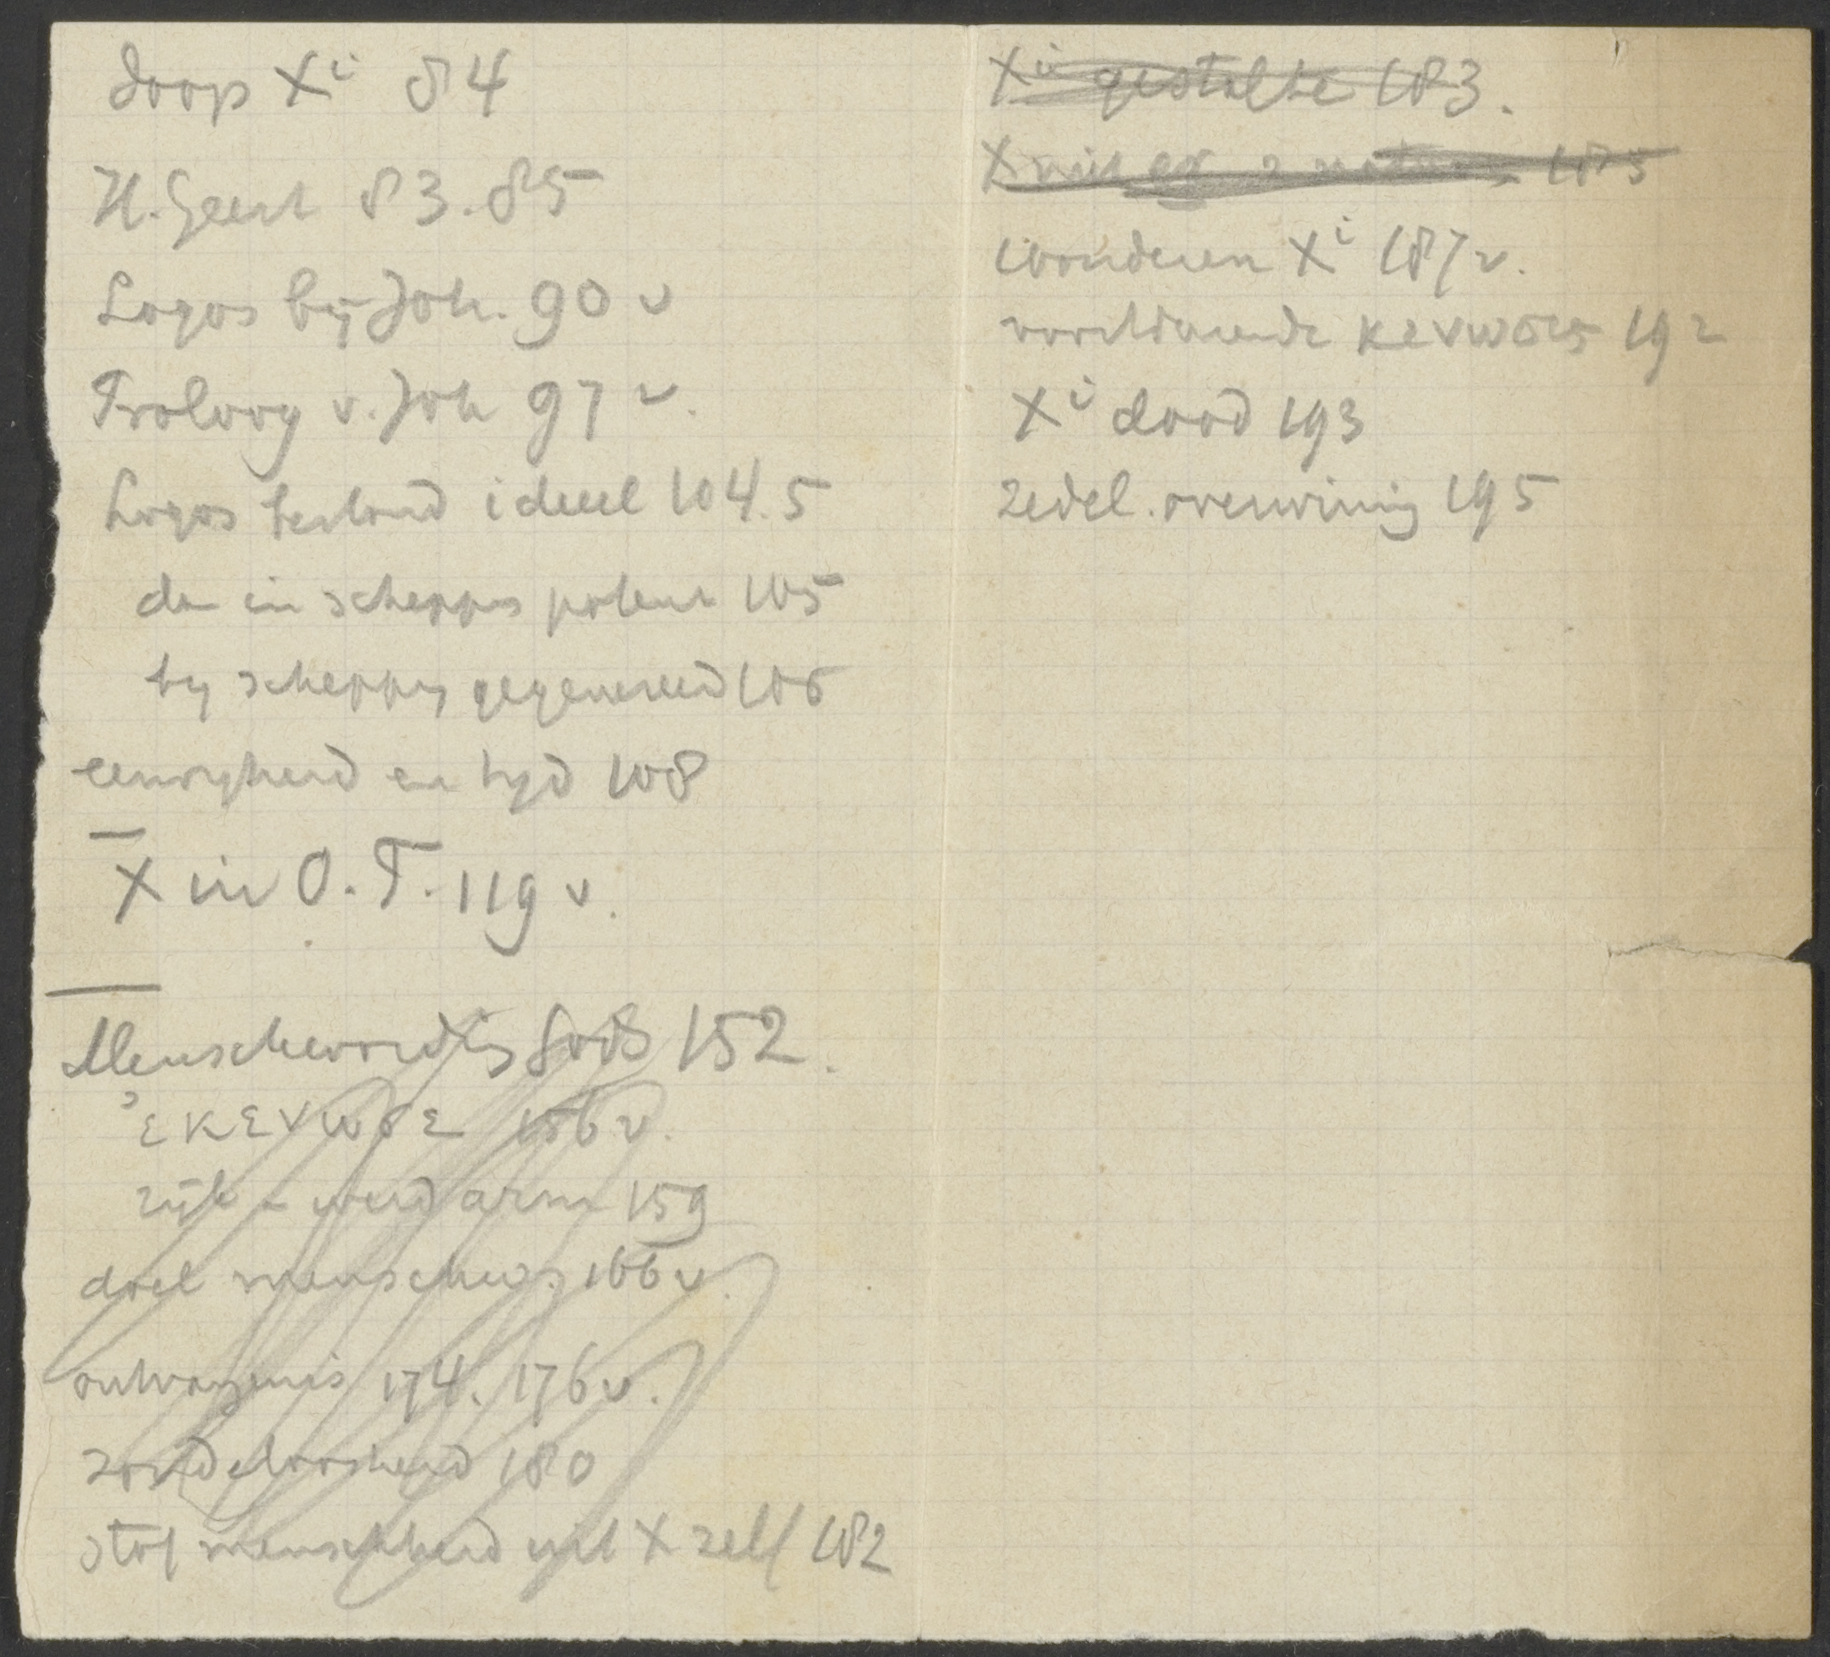 doop Xⁱ 84
H. Geest 83. 85
Logos bij Joh. 90 v
Proloog v. Joh 97 v.
Logos bestond ideeel 104. 5
dan in schepps potent 105
bij schepping gegenereerd 106
eeuwigheid en tijd 108
X in O. T. 119 v.
Menschwording Gods 152.
ἐκενωσε 156 v.
rijk - werd arm 159
doel menschw. 166 v.
ontvangenis 174. 176 v.
zondeloosheid 180
stof menschheid uit X zelf 182
Xⁱ gestalte 183.
X niet ex 2 naturen 185
wonderen Xⁱ 187 v.
voortdurende κενωσις 192
Xⁱ dood 193
zedel. overwining 195